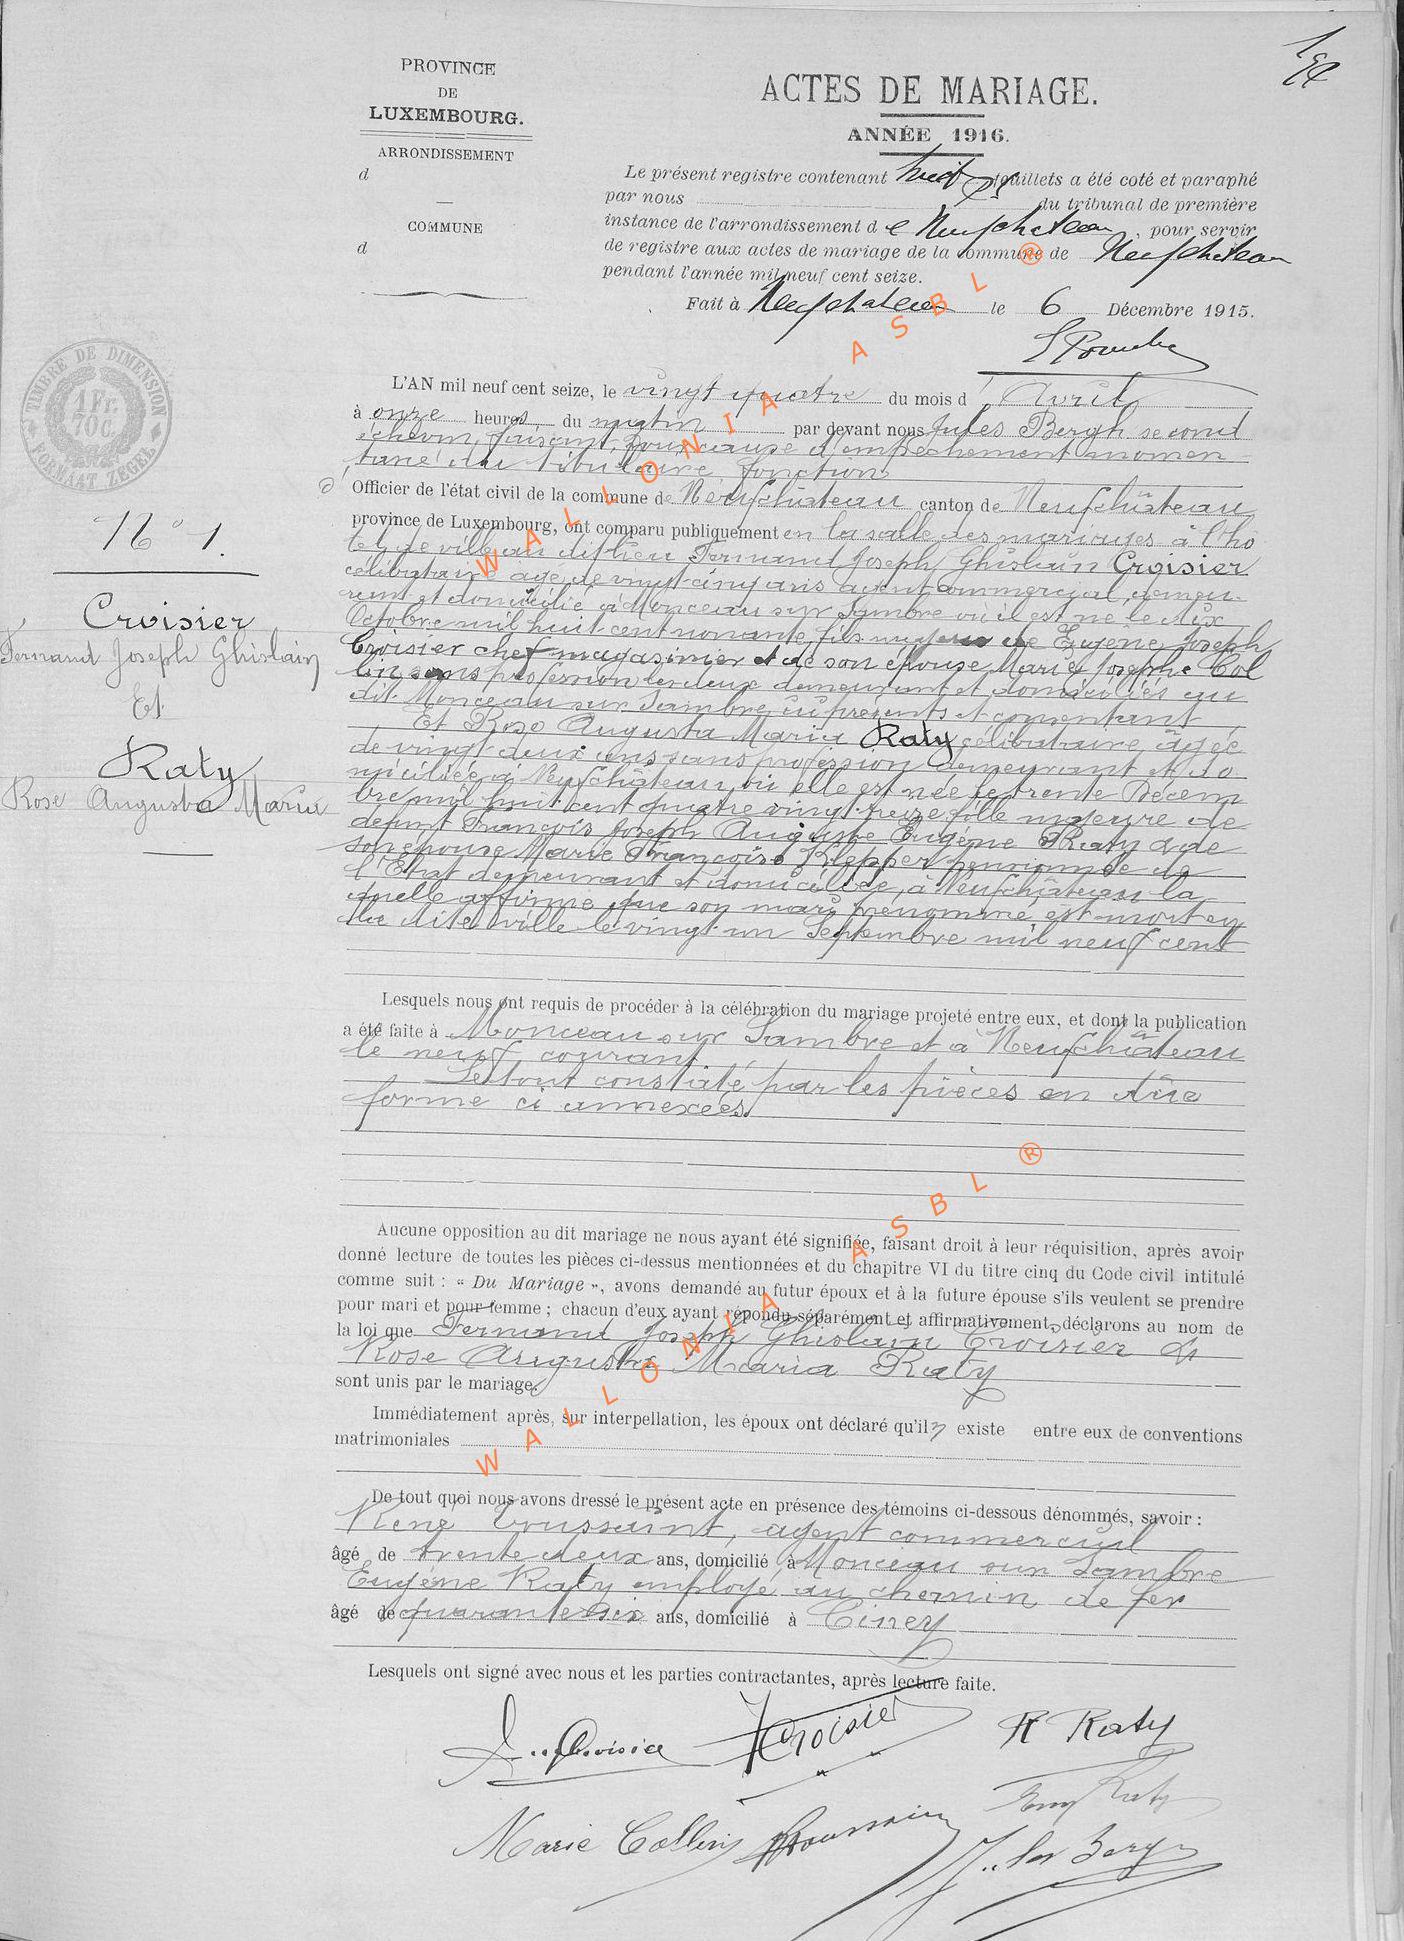 PROVINCE
DE
LUXEMBOURG.
ARRONDISSEMENT
d
COMMUNE
d
ACTES DE MARIAGE.
ANNÉE 1916.
Le présent registre contenant huit feuillets a été coté et paraphé
par nous du tribunal de première
instance de l'arrondissement d e Neufchateau, pour servir
de registre aux actes de mariage de la commune de Neufchateau
pendant l'année mil neuf cent seize.
Fait à Neufchateau le 6 Décembre 1915.
TIMBRE DE DIMENSION
1 Fr.
70 C.
FORMAAT ZEGEL
N° 1.
Croisier
Fernand Joseph Ghislain
Et
Raty
Rose Augusta Maria
L'AN mil neuf cent seize, le vingt quatre du mois d' Avril
à onze heures, du matin par devant nous Jules Bergh second
échevin, faisant, pour cause d'empêchement momen-
tané du titulaire, fonction
Officier de l'état civil de la commune de Neufchâteau canton de Neufchâteau
province de Luxembourg, ont comparu publiquement en la salle des mariages à l'hô
tel de ville au dit lieu Fernand Joseph Ghislain Croisier
célibataire âgé de vingt-cinq ans agent commercial, demeu-
rant et domicilié à Monceau sur Sambre où il est né le dix
Octobre mil huit cent nonante, fils majeur de Eugène Joseph
Croisier chef magasinier et de son épouse Marie Josephe Col
lin sans profession les deux demeurant et domiciliés au
dit Monceau sur Sambre ici présents et consentant
Et Rose Augusta Maria Raty célibataire âgée
de vingt deux ans sans profession demeurant et do
miciliée à Neufchâteau, où elle est née le trente Décem
bre mil huit cent quatre vingt treize fille majeure de
défunt François Joseph Auguste Eugène Raty & de
son épouse Marie Françoise Klepper pensionnée de
l'Etat demeurant et domiciliée à Neufchâteau la
quelle affirme que son mari prénommé est mort en
la dite ville le vingt un Septembre mil neuf cent
Lesquels nous ont requis de procéder à la célébration du mariage projeté entre eux, et dont la publication
a été faite à Monceau sur Sambre et à Neufchâteau
le neuf courant
Le tout constaté par les pièces en due
forme ci annexées
Aucune opposition au dit mariage ne nous ayant été signifiée, faisant droit à leur réquisition, après avoir
donné lecture de toutes les pièces ci-dessus mentionnées et du chapitre VI du titre cinq du Code civil intitulé
comme suit : « Du Mariage », avons demandé au futur époux et à la future épouse s'ils veulent se prendre
pour mari et pour femme ; chacun d'eux ayant répondu séparément et affirmativement, déclarons au nom de
la loi que Fernand Joseph Ghislain Croisier &
Rose Augusta Maria Raty
sont unis par le mariage.
Immédiatement après, sur interpellation, les époux ont déclaré qu'il existe entre eux de conventions
matrimoniales
De tout quoi nous avons dressé le présent acte en présence des témoins ci-dessous dénommés, savoir :
René Toussaint, agent commercial
âgé de trente deux ans, domicilié à Monceau sur Sambre
Eugène Raty employé au chemin de fer
âgé de quarante six ans, domicilié à Ciney
Lesquels ont signé avec nous et les parties contractantes, après lecture faite.
Croisier
Croisier
R Raty
Raty
Marie Collin
Toussaint
Jules Bergh
WALLONIA ASBL ®
WALLONIA ASBL ®